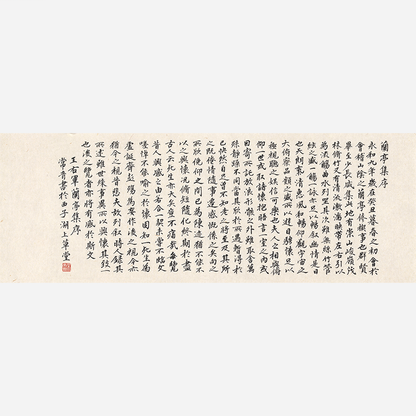 蘭亭集序
永和九年歲在癸丑暮春之初會於
會稽山陰之蘭亭修禊事也群賢
畢至少長咸集此地有崇山峻嶺茂
林修竹又有清流激湍映帶左右引以
為流觴曲水列坐其次雖無絲竹管
絃之盛一觴一詠亦足以暢敘幽情是日
也天朗氣清惠風和暢仰觀宇宙之
大俯察品類之盛所以遊目騁懷足以
極視聽之娛信可樂也夫人之相與俯
仰一世或取諸懷抱晤言一室之內或
因寄所託放浪形骸之外雖取舍萬
殊靜躁不同當其欣於所遇暫得於
己快然自足曾不知老之將至及其所
之既倦情隨事遷感慨係之矣向之
所欣俛仰之間已為陳迹猶不能不
以之興懷況修短隨化終期於盡
古人云死生亦大矣豈不痛哉每覽
昔人興感之由若合一契未嘗不臨文
嗟悼不能喻之於懷固知一死生為
虛誕齊彭殤為妄作後之視今亦
猶今之視昔悲夫故列敘時人錄其
所述雖世殊事異所以興懷其致一
也後之覽者亦將有感於斯文
王右軍蘭亭集序
常青書於西子湖上草堂